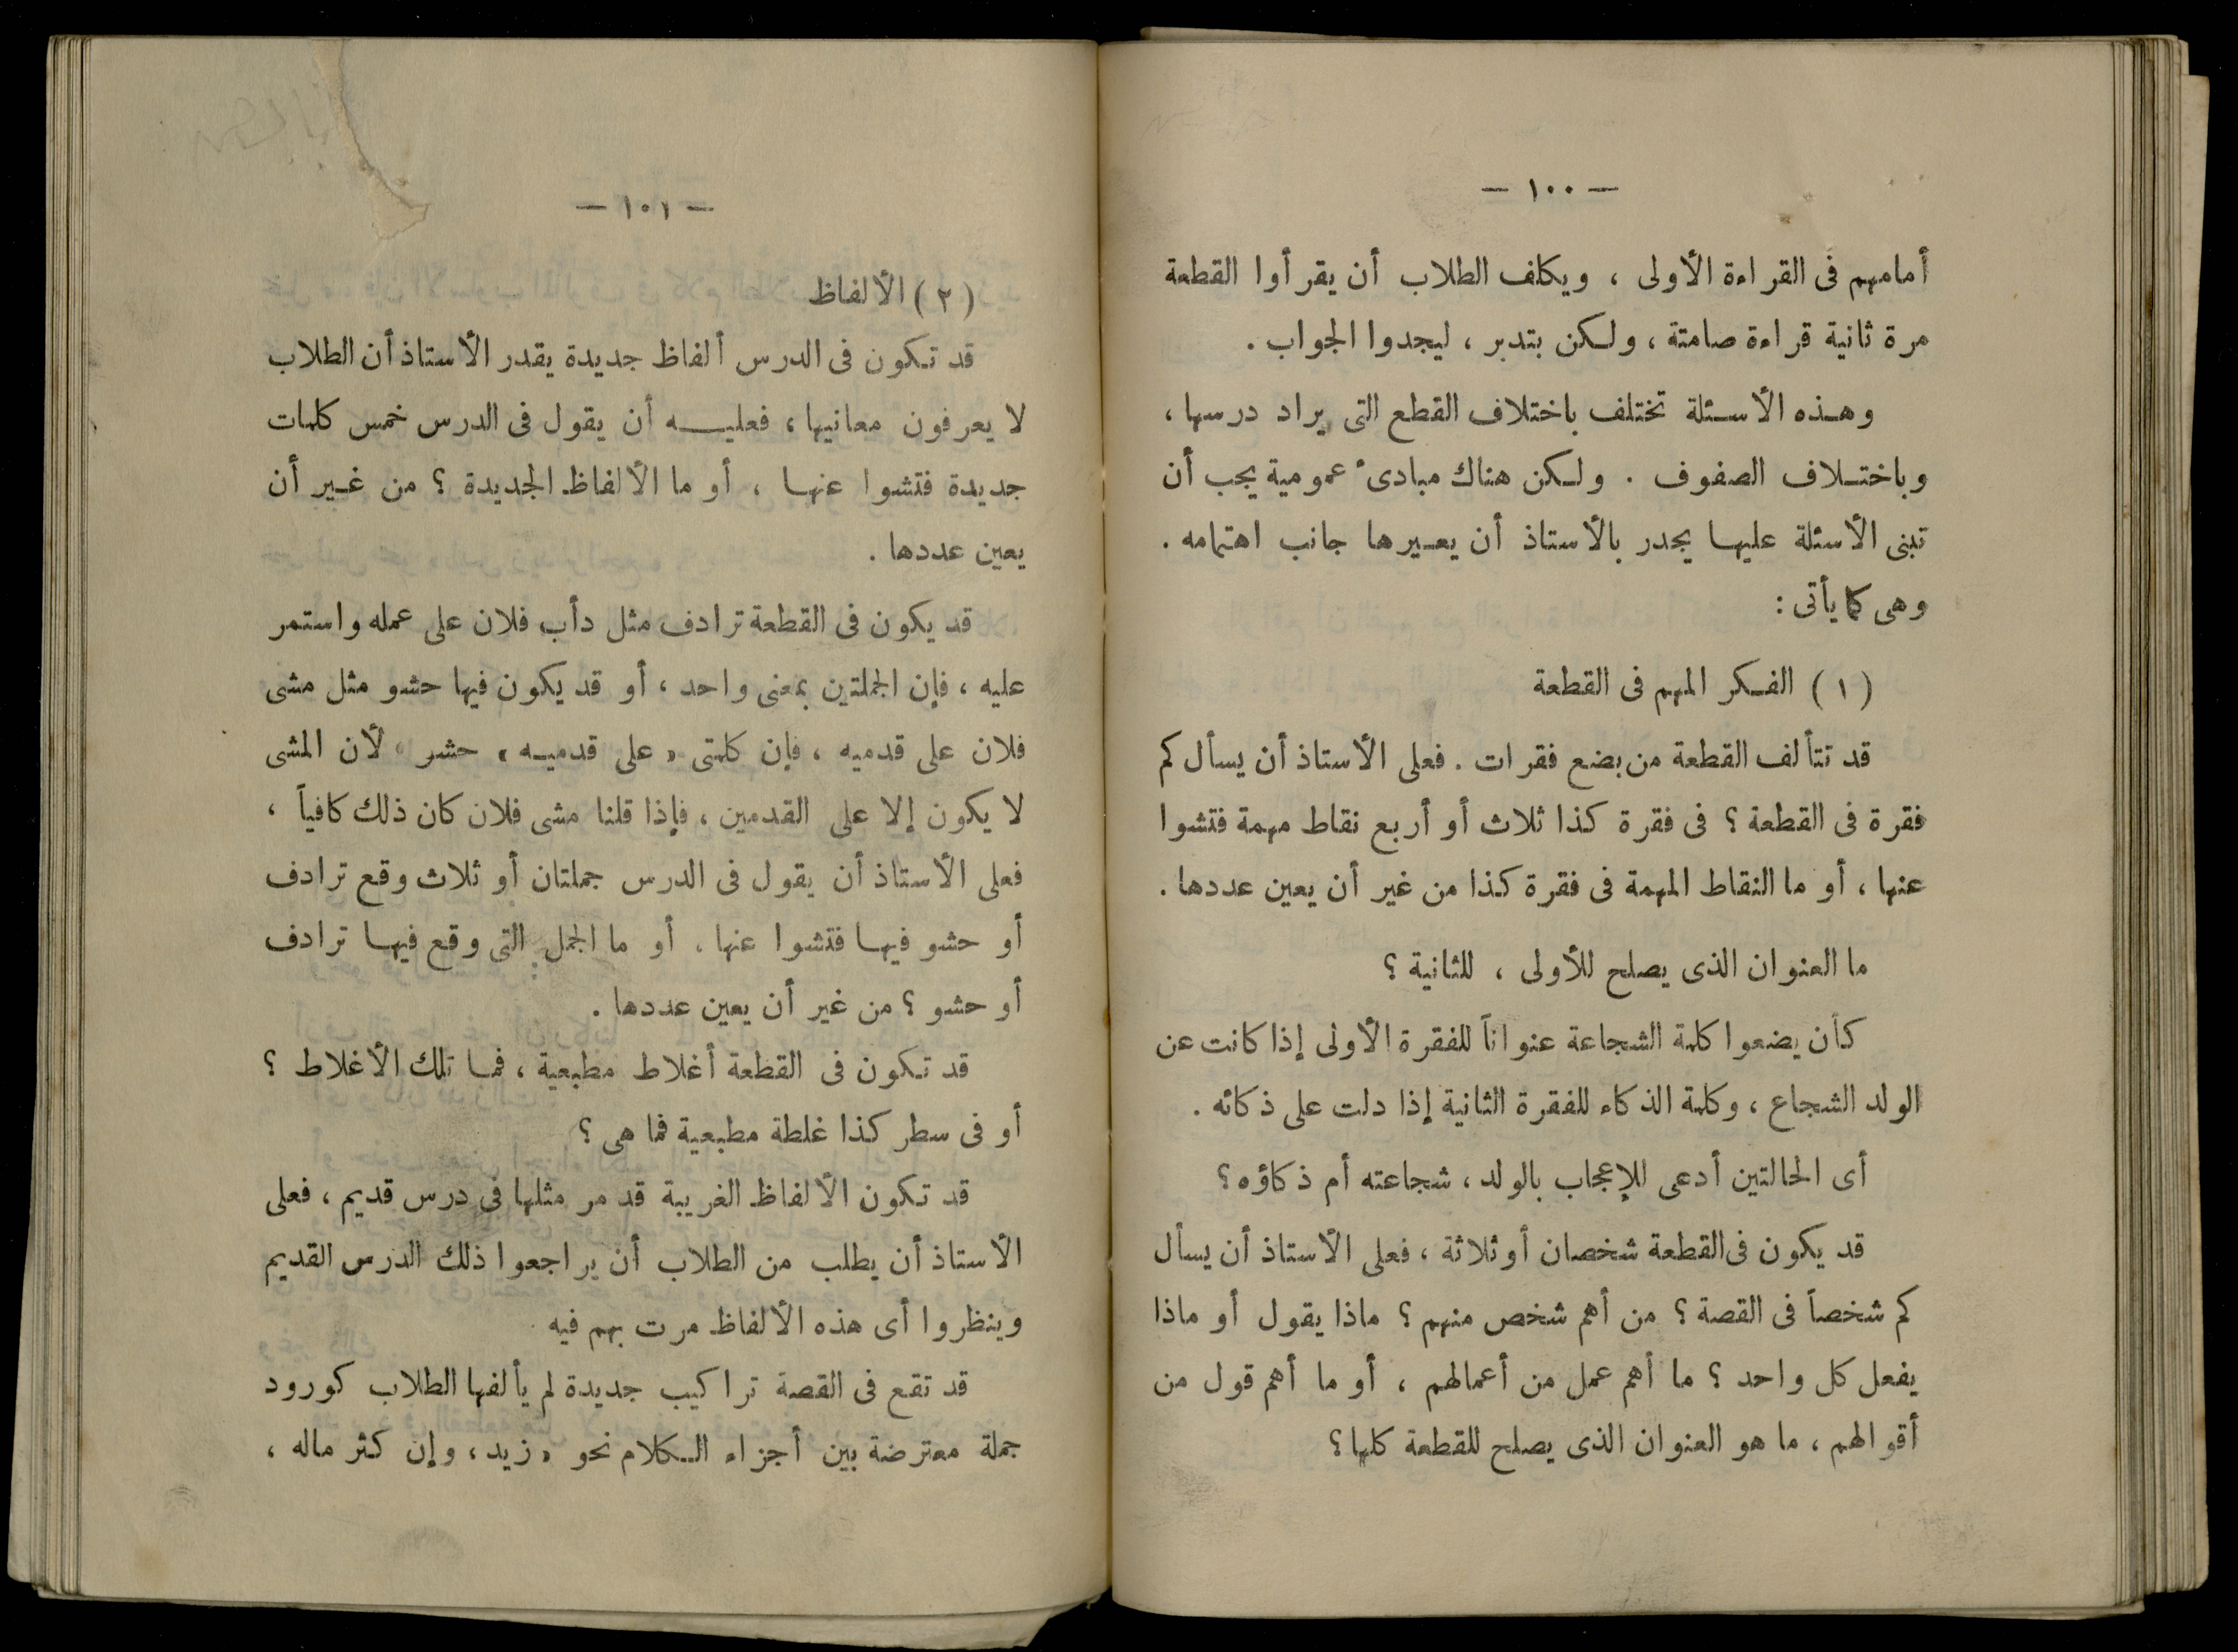 — ١٠٠ —
أمامهم فى القراءة الأولى ، ويكلف الطلاب أن يقرأوا القطعة
مرة ثانية قراءة صامتة ، ولكن بتدبر ، ليجدوا الجواب .
وهذه الأسئلة تختلف باختلاف القطع التى يراد درسها ،
وباختلاف الصفوف . ولكن هناك مبادئ عمومية يجب أن
تبنى الأسئلة عليها يجدر بالأستاذ أن يعيرها جانب اهتمامه .
وهى كما يأتى :
( ١ ) الفكر المهم فى القطعة
قد تتألف القطعة من بضع فقرات . فعلى الأستاذ أن يسأل كم
فقرة فى القطعة ؟ فى فقرة كذا ثلاث أو أربع نقاط مهمة فتشوا
عنها ، أو ما النقاط المهمة فى فقرة كذا من غير أن يعين عددها .
ما العنوان الذى يصلح للأولى ، للثانية ؟
كأن يضعوا كلمة الشجاعة عنواناً للفقرة الأولى إذا كانت عن
الولد الشجاع ، وكلمة الذكاء للفقرة الثانية إذا دلت على ذكائه .
أى الحالتين أدعى للإعجاب بالولد ، شجاعته أم ذكاؤه ؟
قد يكون فى القطعة شخصان أو ثلاثة ، فعلى الأستاذ أن يسأل
كم شخصاً فى القصة ؟ من أهم شخص منهم ؟ ماذا يقول أو ماذا
يفعل كل واحد ؟ ما أهم عمل من أعمالهم ، أو ما أهم قول من
أقوالهم ، ما هو العنوان الذى يصلح للقطعة كلها ؟
— ١٠١ —
( ٢ ) الألفاظ
قد تكون فى الدرس ألفاظ جديدة يقدر الأستاذ أن الطلاب
لا يعرفون معانيها ، فعليه أن يقول فى الدرس خمس كلمات
جديدة فتشوا عنها ، أو ما الألفاظ الجديدة ؟ من غير أن
يعين عددها .
قد يكون فى القطعة ترادف مثل دأب فلان على عمله واستمر
عليه ، فإن الجملتين بمعنى واحد ، أو قد يكون فيها حشو مثل مشى
فلان على قدميه ، فإن كلمتى « على قدميه » حشر لأن المشى
لا يكون إلا على القدمين ، فإذا قلنا مشى فلان كان ذلك كافياً ،
فعلى الأستاذ أن يقول فى الدرس جملتان أو ثلاث وقع ترادف
أو حشو فيها فتشوا عنها . أو ما الجمل التى وقع فيها ترادف
أو حشو ؟ من غير أن يعين عددها .
قد تكون فى القطعة أغلاط مطبعية ، فما تلك الأغلاط ؟
أو فى سطر كذا غلطة مطبعية فما هى ؟
قد تكون الألفاظ الغريبة قد مر مثلها فى درس قديم ، فعلى
الأستاذ أن يطلب من الطلاب أن يراجعوا ذلك الدرس القديم
وينظروا أى هذه الألفاظ مرت بهم فيه .
قد تقع فى القصة تراكيب جديدة لم يألفها الطلاب كورود
جملة معترضة بين أجزاء الكلام نحو « زيد ، وإن كثر ماله ،